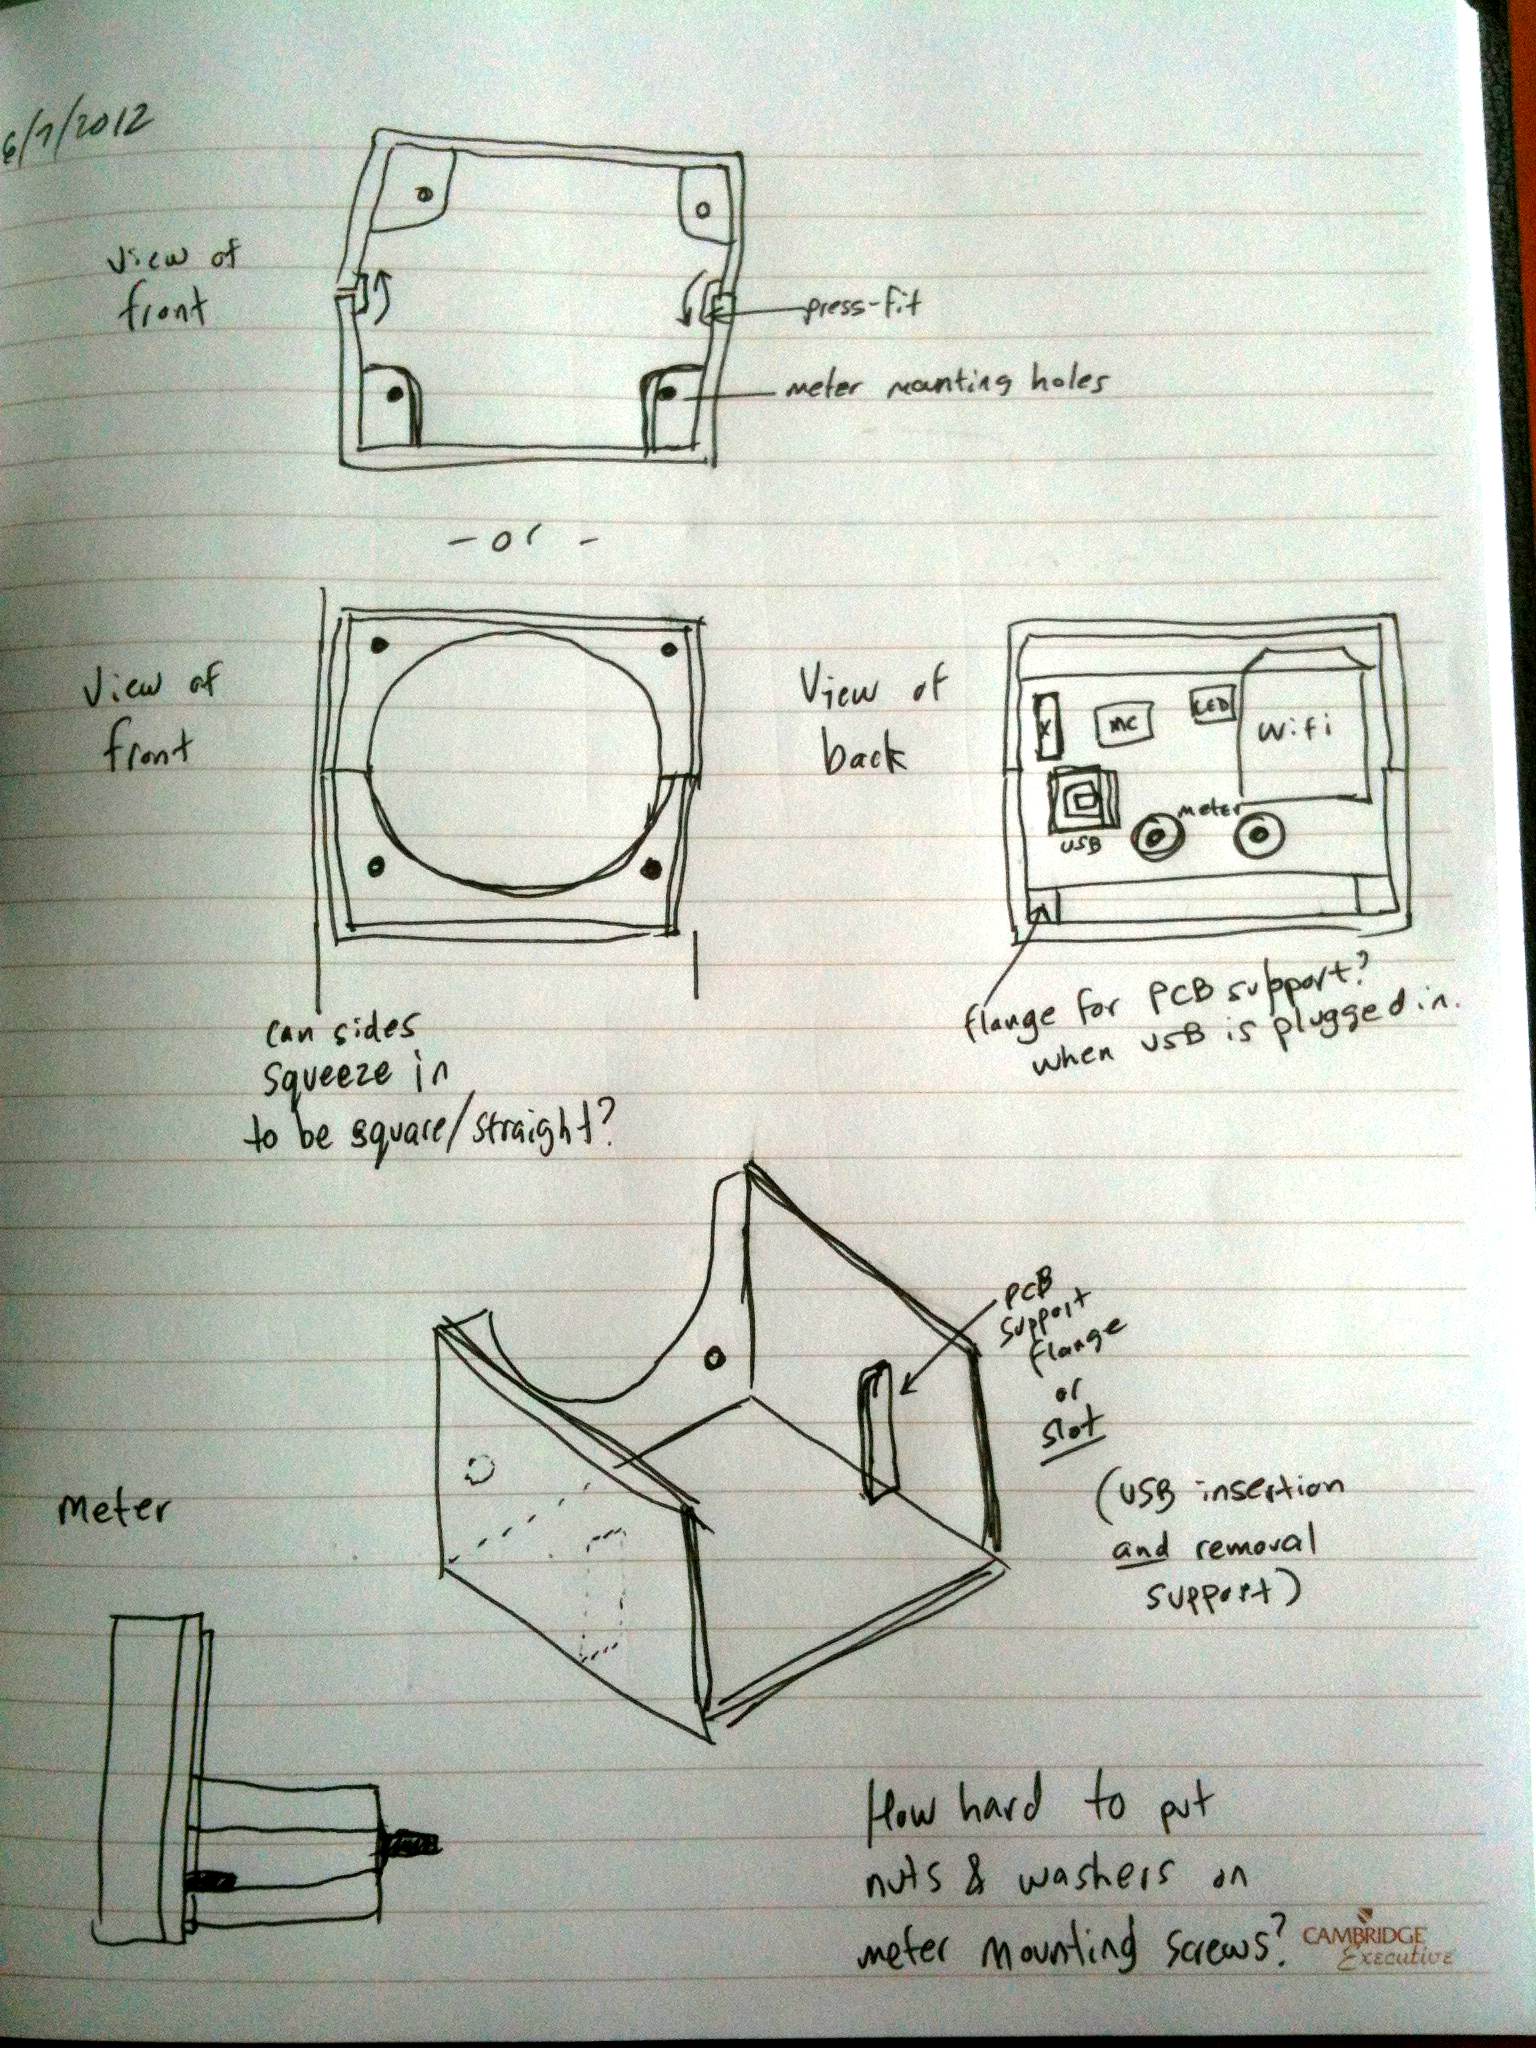 6/7/2012
View of
front
press-fit
meter mounting holes
- or -
View of
front
View of
back
X
MC
LED
Wifi
USB
meter
can sides
squeeze in
to be square/straight?
flange for PCB support?
when USB is plugged in.
PCB
support
flange
or
slot
(USB insertion
and removal
support)
Meter
How hard to put
nuts & washers on
meter mounting screws?
CAMBRIDGE
Executive